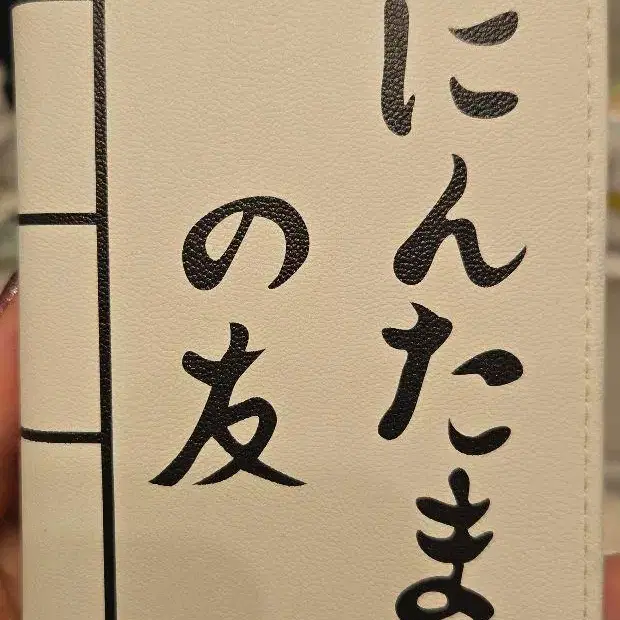 にんたま
の友